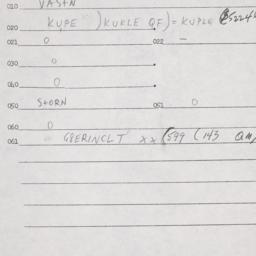 010 VASTN
KUPE )KUKLE QF)= KUPLE
020
021 0 022 -
030 0
040 0
050 STORN 051 0
060 0
061 GPERINCLT xx (599 (143 QM